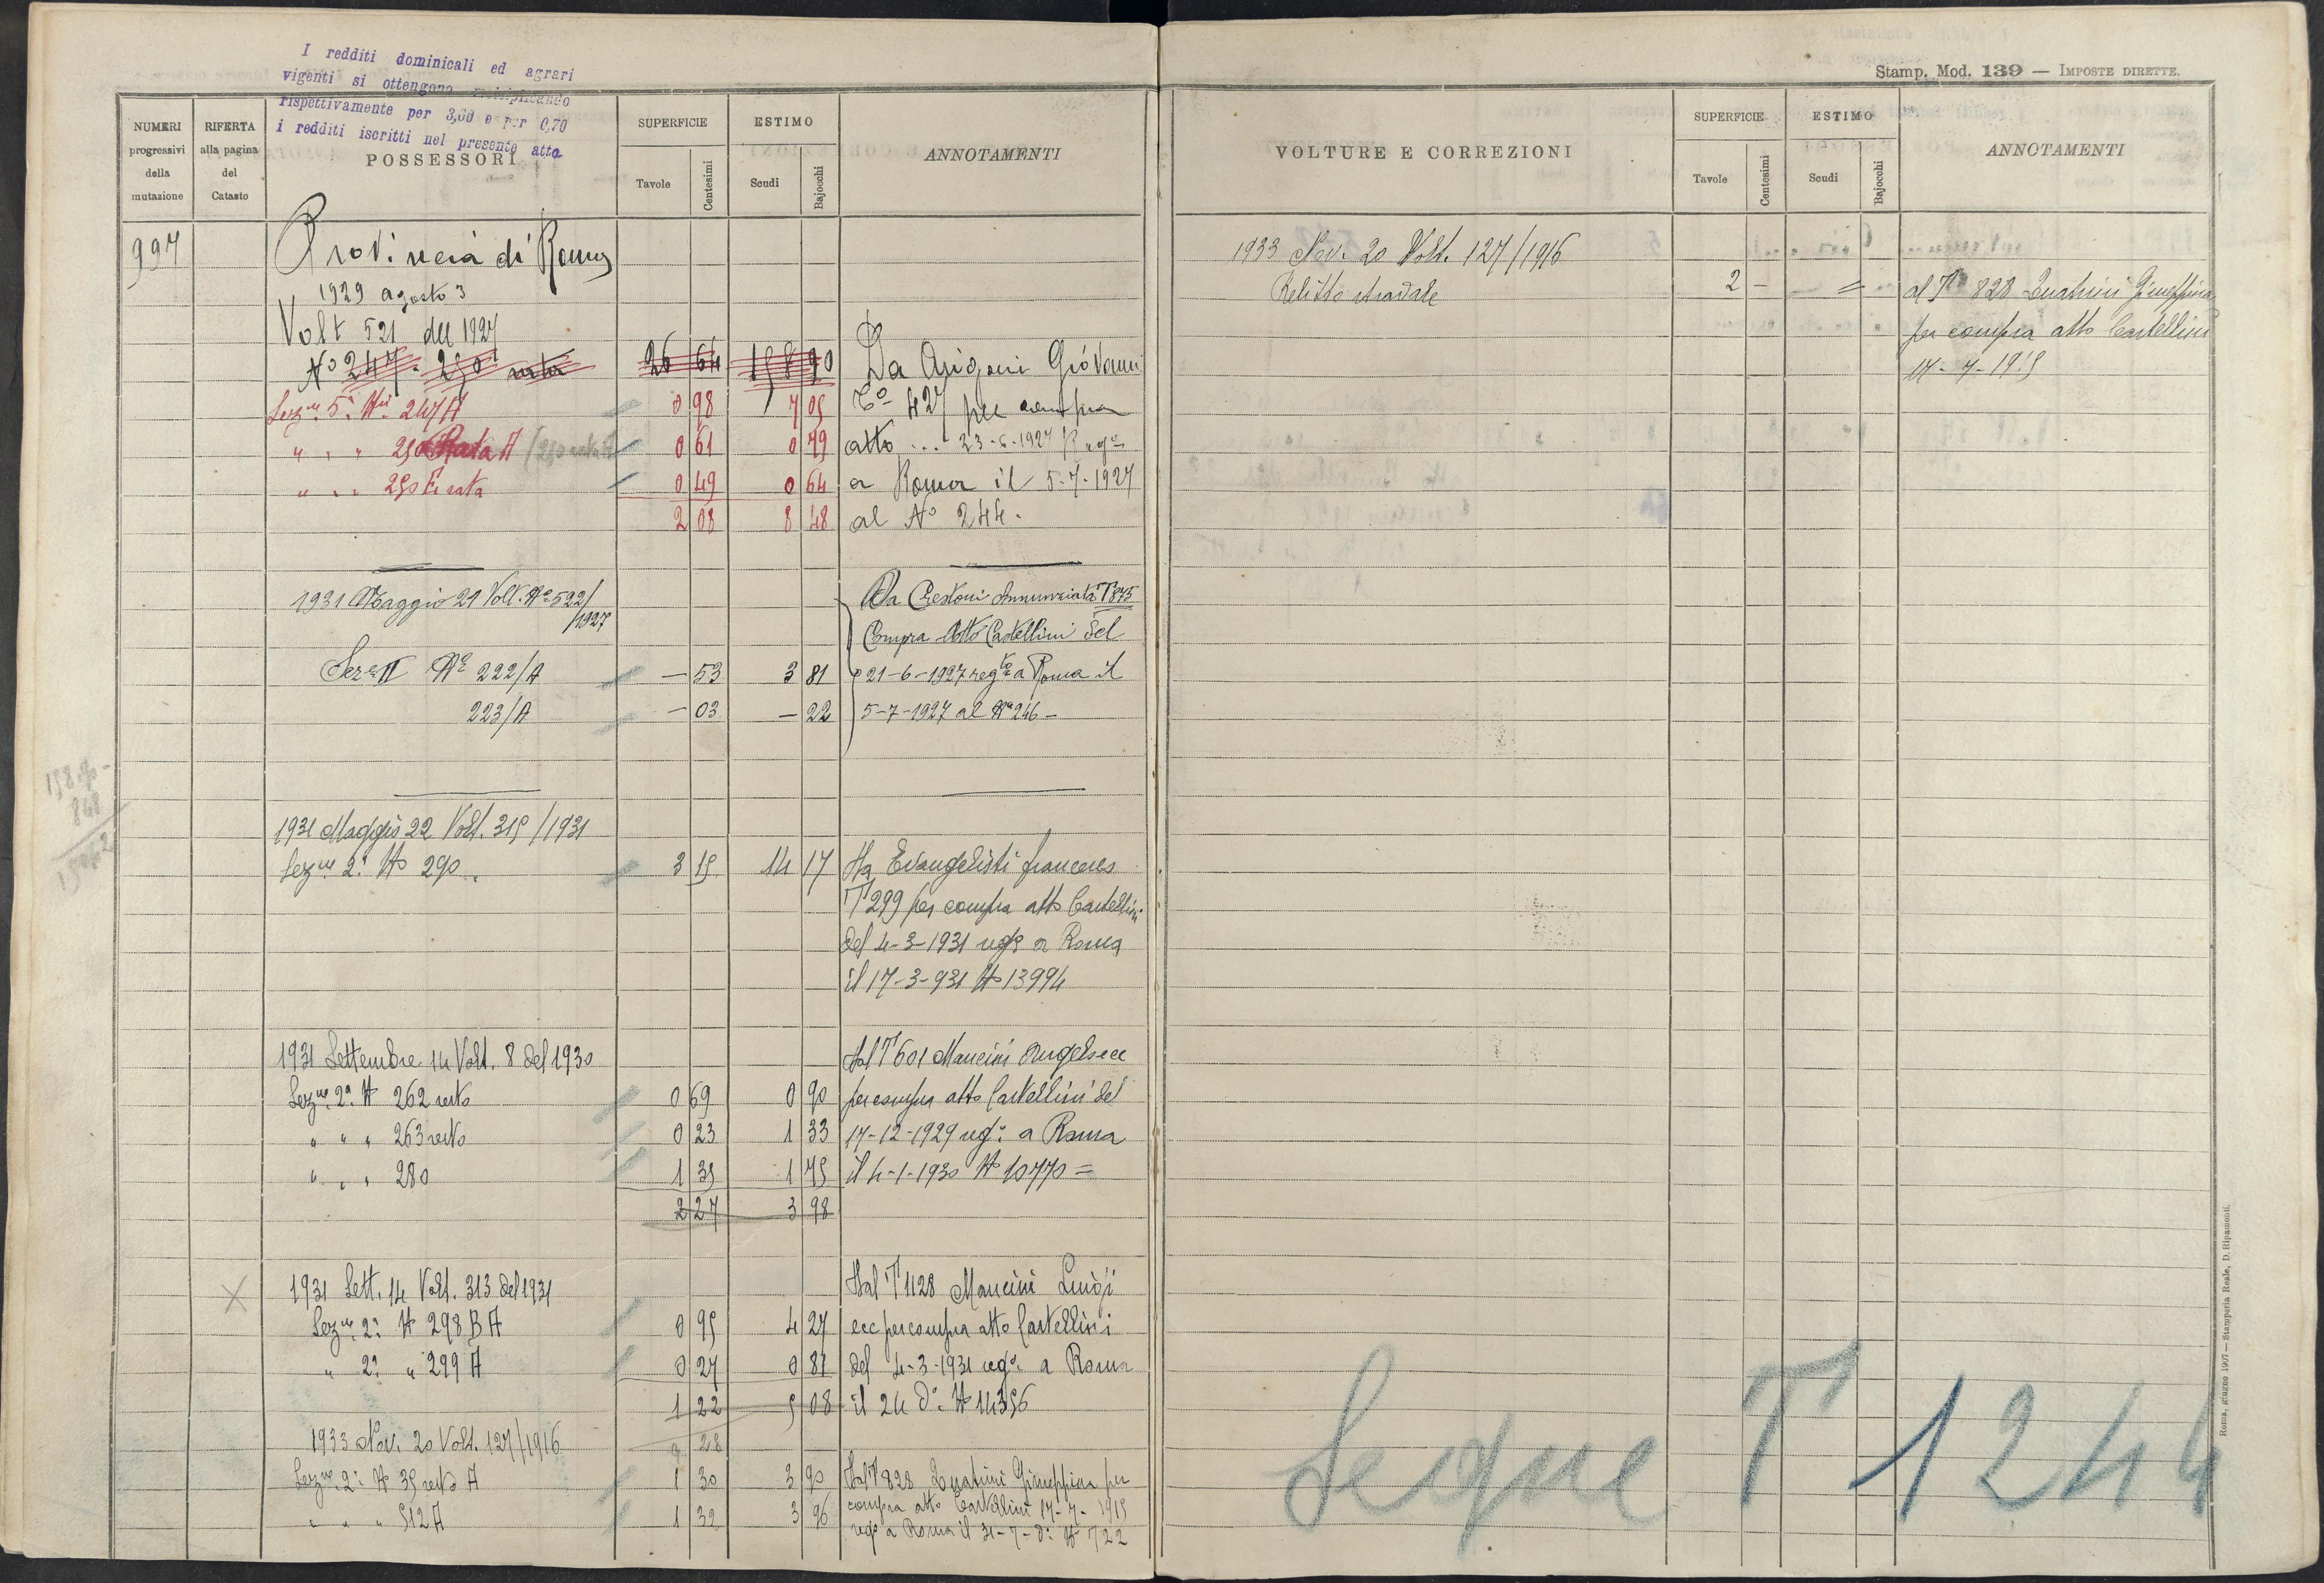 I redditi dominicali ed agrari
vigenti si ottengono moltiplicando
rispettivamente per 3,00 e per 0,70
i redditi iscritti nel presente atto
Stamp. Mod. 139 — IMPOSTE DIRETTE.
NUMERI progressivi della mutazione
RIFERTA alla pagina del Catasto
POSSESSORI
SUPERFICIE
Tavole
Centesimi
ESTIMO
Scudi
Bajocchi
ANNOTAMENTI
VOLTURE E CORREZIONI
SUPERFICIE
Tavole
Centesimi
ESTIMO
Scudi
Bajocchi
ANNOTAMENTI
997
Provincia di Roma
1929 agosto 3
Volt 521 del 1927
No 247 - 250 26 64 158 90 Da Arigoni Giovanni
Sezne 5a Ni 247 A 0 98 7 05 To 427 per compra
" " " 250 Rata A 0 61 0 79 atto ... 23-6-1927
" " " 250 rata 0 49 0 64 a Roma il 5-7-1927
2 08 8 48 al No 244.
1931 Maggio 21 Volt. No 522/1927
Da Crestoni Annunziata T 875
Compra Atto Castellini del
Sez II No 222/A — 53 3 81 21-6-1927 regto a Roma il
223/A — 03 — 22 5-7-1927 al No 246 —
1931 Maggio 22 Volt. 315/1931
Sezne 2a No 290 3 15 14 17 Da Evangelisti
T 299 per compra atto Castellini
del 4-3-1931 rego a Roma
il 17-3-931 No 13994
1931 Settembre 14 Volt. 8 del 1930 Dal T 601 Mancini
Sezne 2a N 262 resto 0 69 0 90 per compra atto Castellini del
" " " 263 resto 0 23 1 33 17-12-1929 rego a Roma
" " " 280 1 35 1 75 il 4-1-1930 No 10770 =
2 27 3 98
1931 Sett. 14 Volt. 313 del 1931 Dal T 1128 Mancini Luigi
Sezne 2a N 298 B A 0 95 4 27 ecc per compra atto Castellini
" 2a " 299 A 0 27 0 81 del 4-3-1931 rego a Roma
1 22 5 08 il 24 do N 14356
1933 Nov. 20 Volt. 127/1916 9 28
Sezne 2a N 35 resto A 1 30 3 90 Dal T 828 Giuseppina per
" " " 512 A 1 32 3 96 compra atto Castellini 17-7-1915
rego a Roma il 31-7-do No 722
1933 Nov. 20 Volt. 127/1916
Relitto stradale 2 — = al T 828 Giuseppina
per compra atto Castellini
17-7-1915
Segue T 1244
Roma, giugno 1907 — Stamperia Reale, D. Ripamonti.